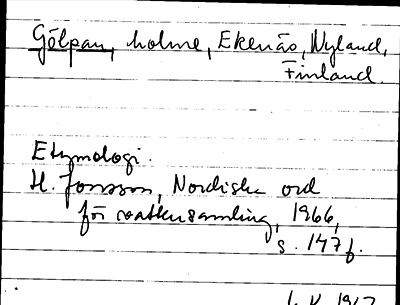 Gölpan, holme, Ekenäs, Nyland,
Finland.
Etymologi.
H. Jonsson, Nordiska ord
för vattensamling, 1966,
s. 147 f.